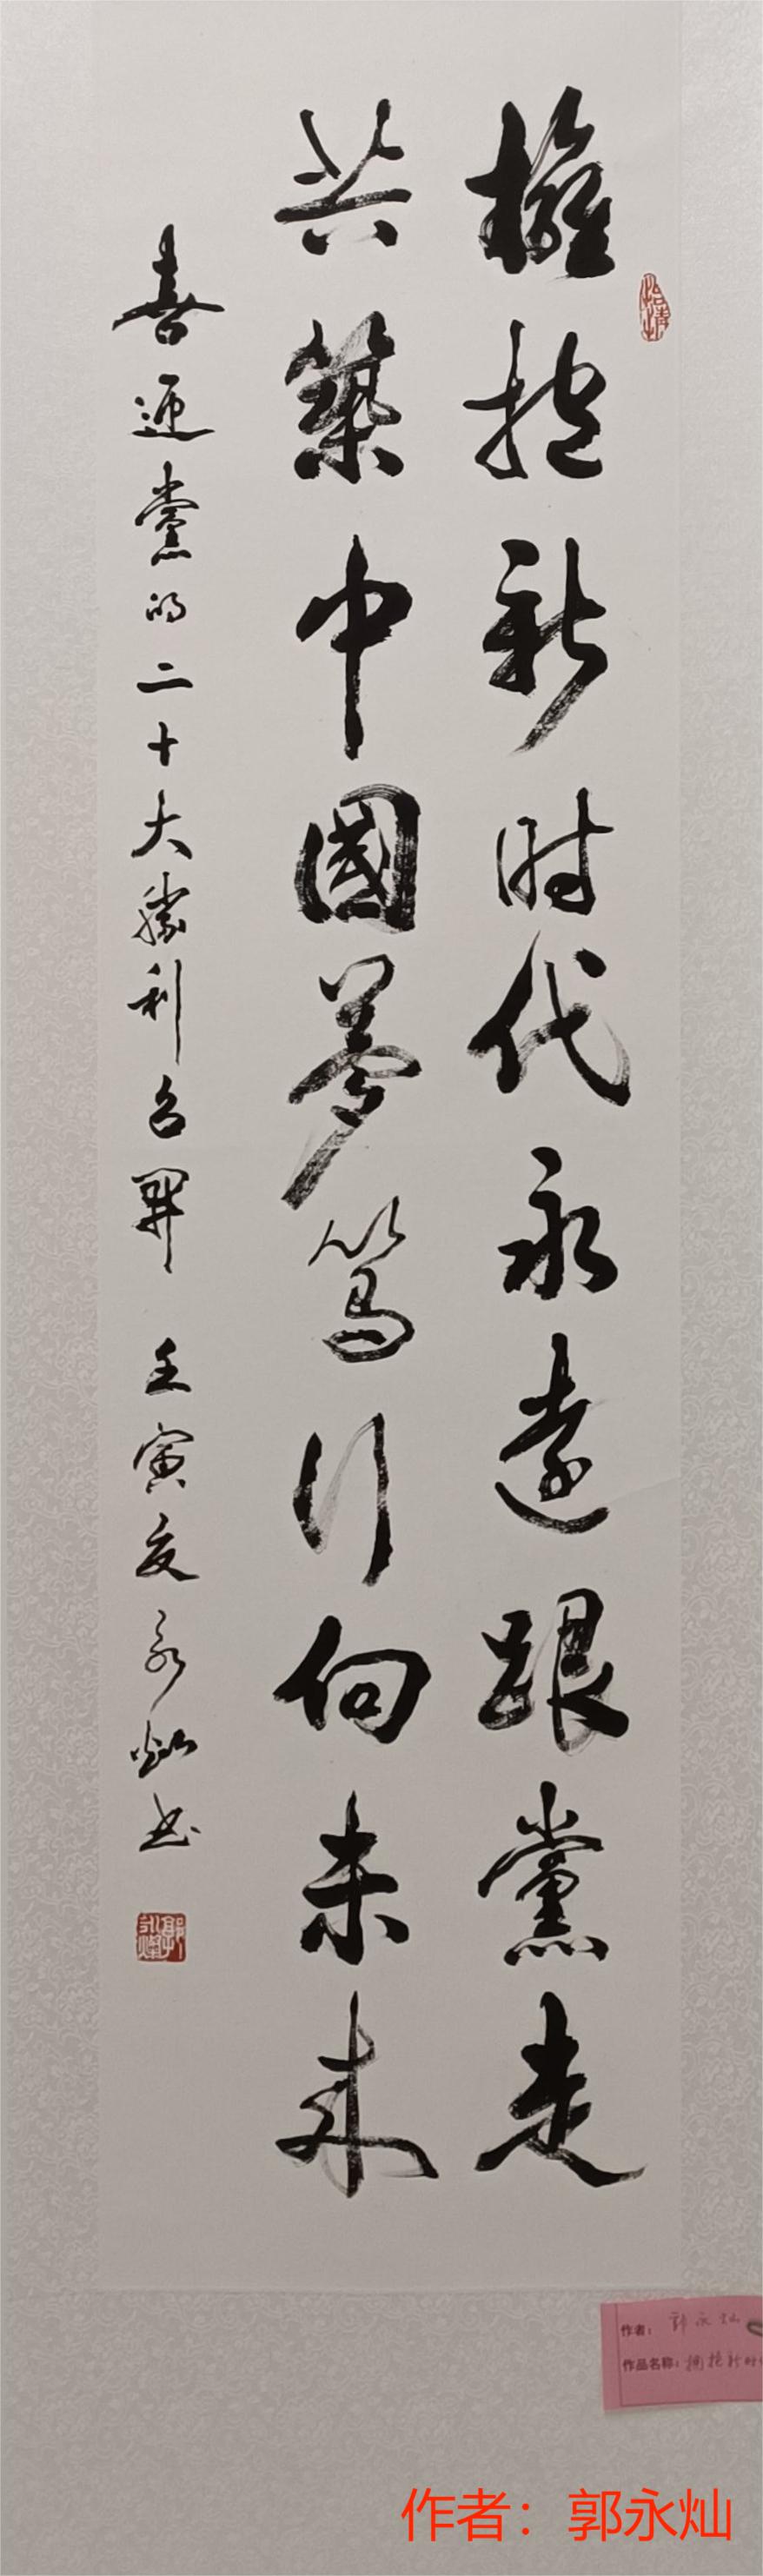 擁抱新时代永遠跟黨走
共築中國夢篤行向未来
喜迎黨的二十大勝利召開 壬寅夏永灿书
作者: 郭永灿
作品名称: 拥抱新时
作者：郭永灿